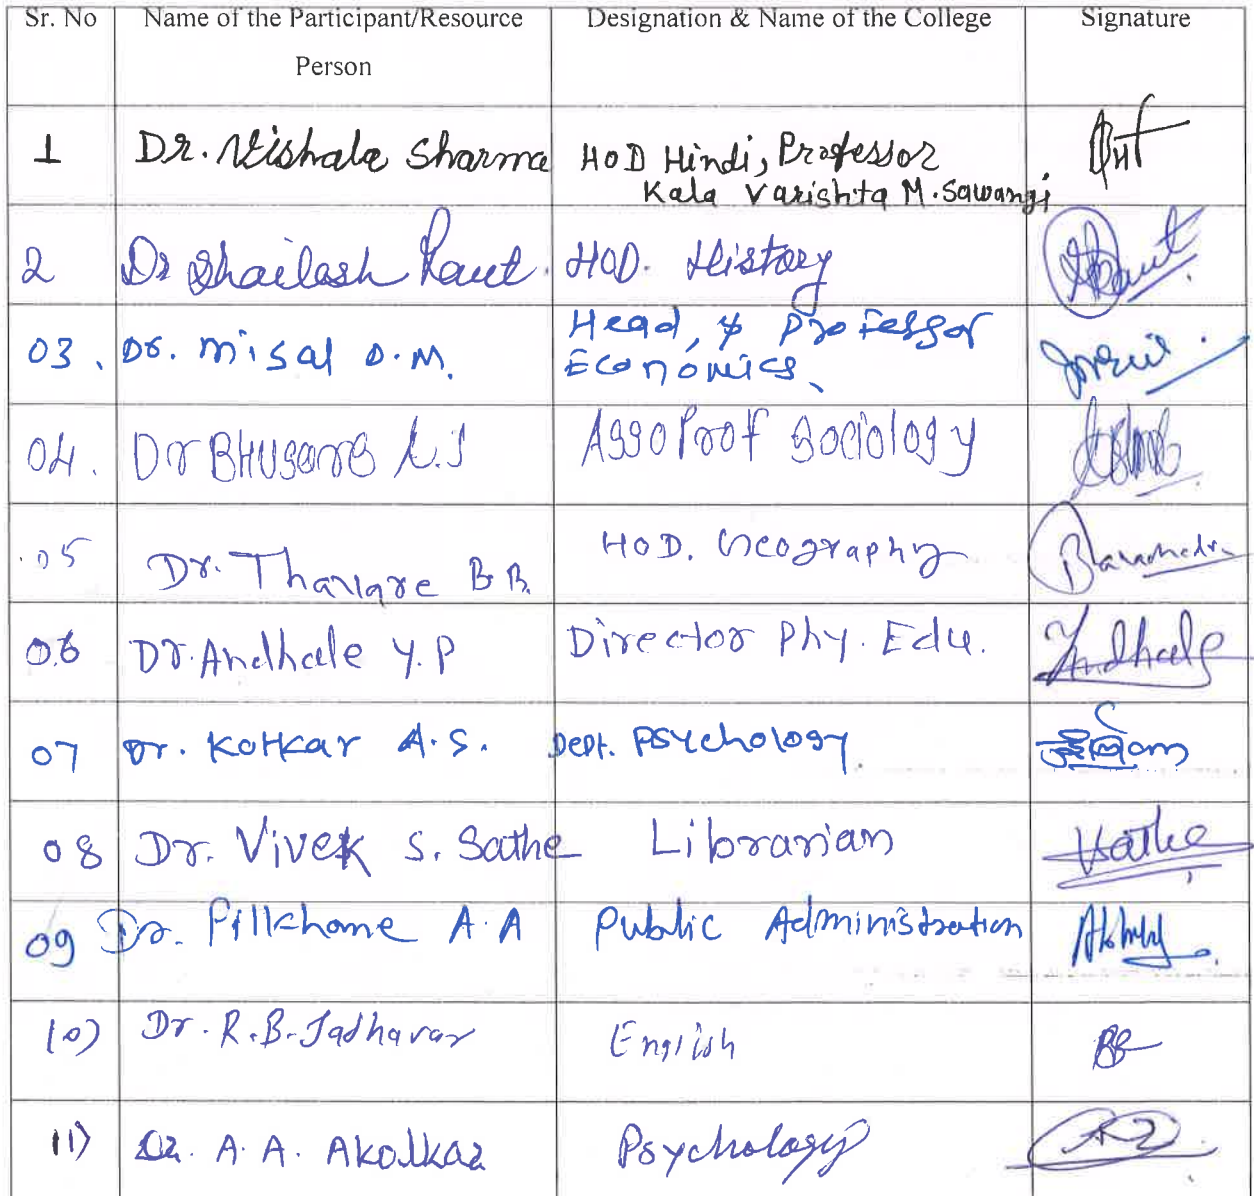 Sr. No Name of the Participant/Resource Person Designation & Name of the College Signature
1 Dr. Vishala Sharma HOD Hindi, Professor
Kala Varishta M. Sawangi
2 Dr Shailesh Raut. HOD. History
03. Dr. Misal D.M. Head, & Professor
Economics
04. Dr Asso Prof Sociology
05 Dr. Thavare B B. HOD. Geography
06 Dr. Andhale Y.P Director Phy. Edu. Andhale
07 Dr. Kotkar A.S. Dept. Psychology
08 Dr. Vivek S. Sathe Librarian Vsathe
09 Dr. Pillkhane A.A Public Administration
10) Dr. R.B. Jadhavar English
11) Dr. A. A. Akolkar Psychology